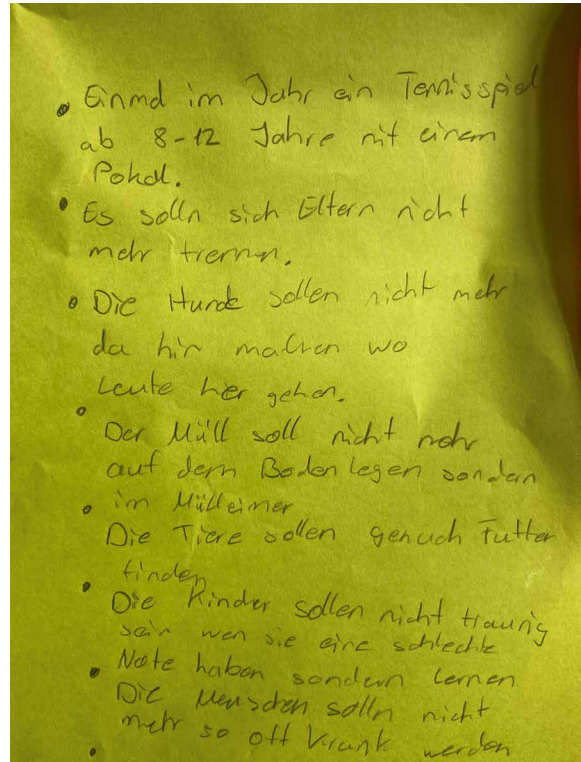 Einmal im Jahr ein Tennisspiel
ab 8-12 Jahre mit einem
Pokal.
Es solln sich Eltern nicht
mehr trennen.
Die Hunde sollen nicht mehr
da hin machen wo
Leute her gehen.
Der Müll soll nicht mehr
auf dem Boden legen sondern
im Mülleimer
Die Tiere sollen genuch Futter
finden
Die Kinder sollen nicht traurig
sein wen sie eine schlechte
Note haben sondern lernen
Die Menschen solln nicht
mehr so oft krank werden